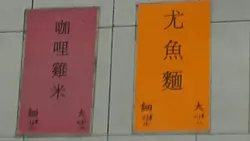 咖哩雞米
細 大
尤魚麵
細 大